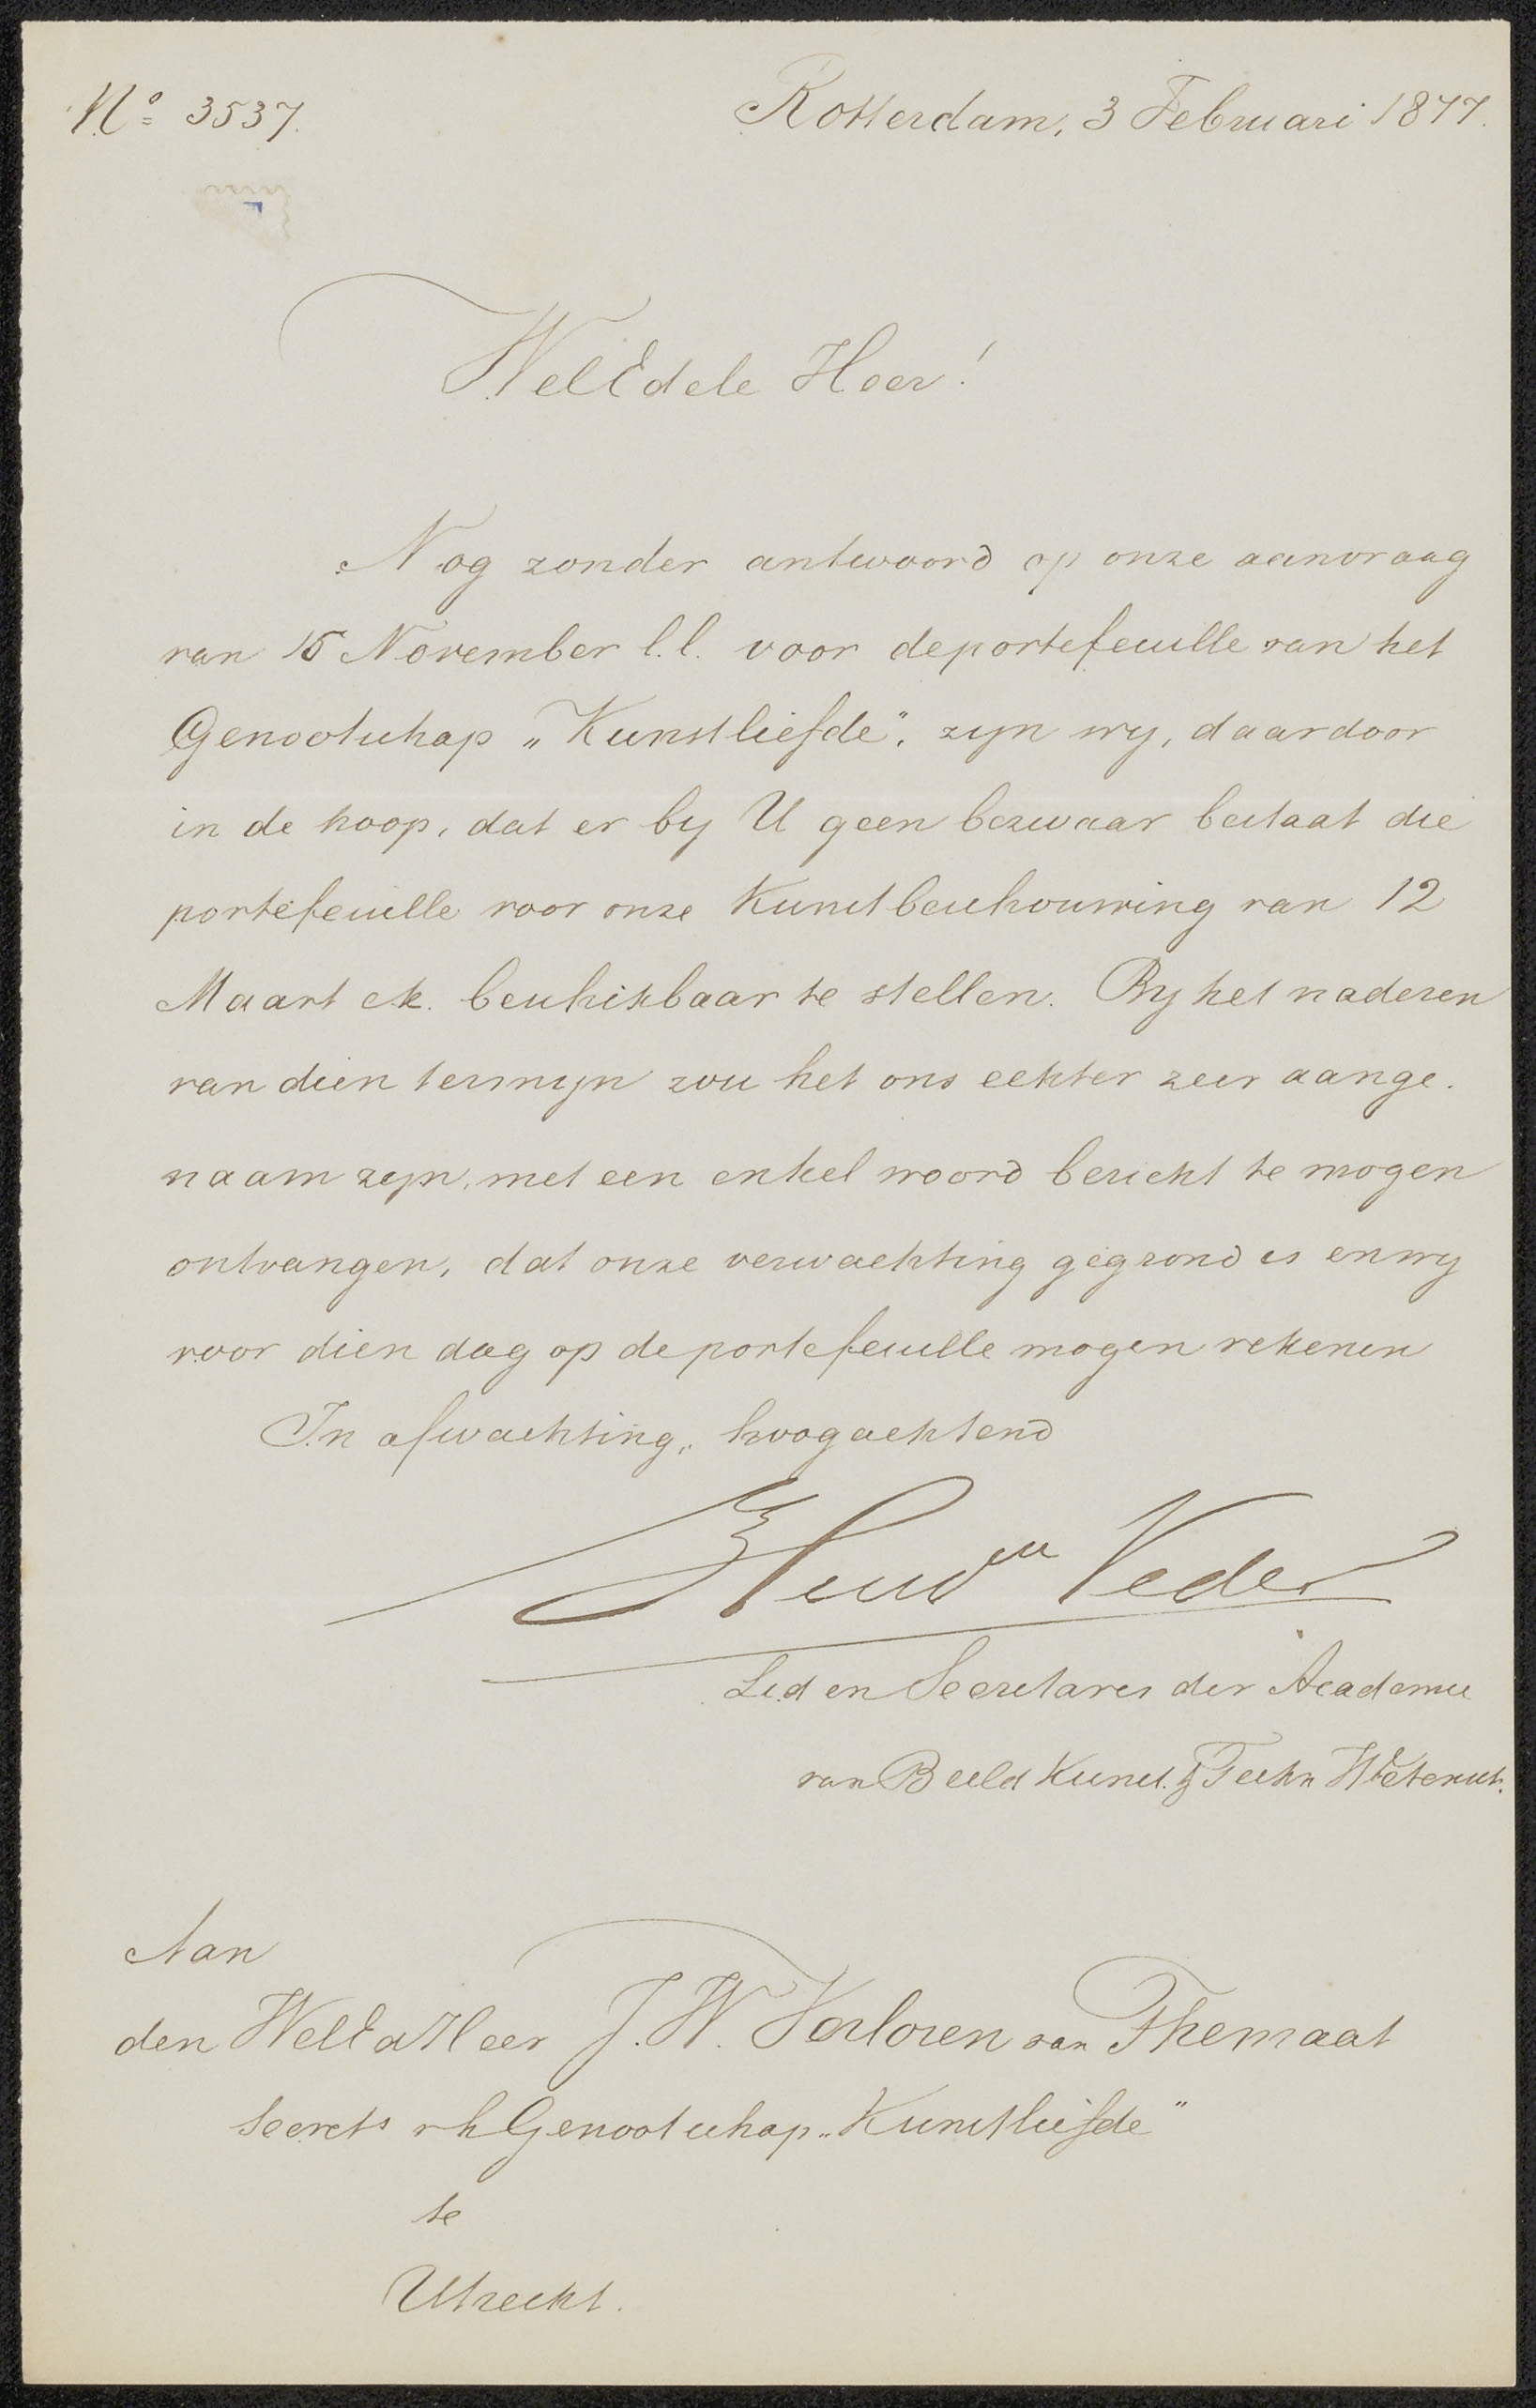 No 3537.
Rotterdam, 3 Februari 1877.
WelEdele Heer!
Nog zonder antwoord op onze aanvraag
van 15 November l.l. voor de portefeuille van het
Genootschap „Kunstliefde", zijn wij, daardoor
in de hoop, dat er bij U geen bezwaar bestaat die
portefeuille voor onze Kunstbeschouwing van 12
Maart ek. beschikbaar te stellen. Bij het naderen
van dien termijn zou het ons echter zeer aange-
naam zijn, met een enkel woord bericht te mogen
ontvangen, dat onze verwachting gegrond is en wij
voor dien dag op de portefeuille mogen rekenen
In afwachting, hoogachtend
Veder
Lid en Secretaris der Academie
van Beeld Kunst. & Techn Wetensch.
Aan
den WelEd Heer J. W. Verloren van Themaat
Secrets v h Genootschap „Kunstliefde"
te
Utrecht.